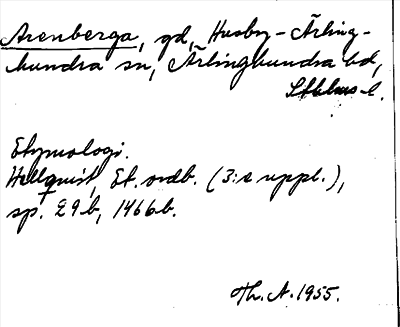 Arenberga, gd, Husby-Ärling-
hundra sn, Ärlinghundra hd,
Sthlms l.
Etymologi.
Hellquist, Et. ordb. (3:e uppl.),
sp. 29b, 1466b.
Th. A. 1955.